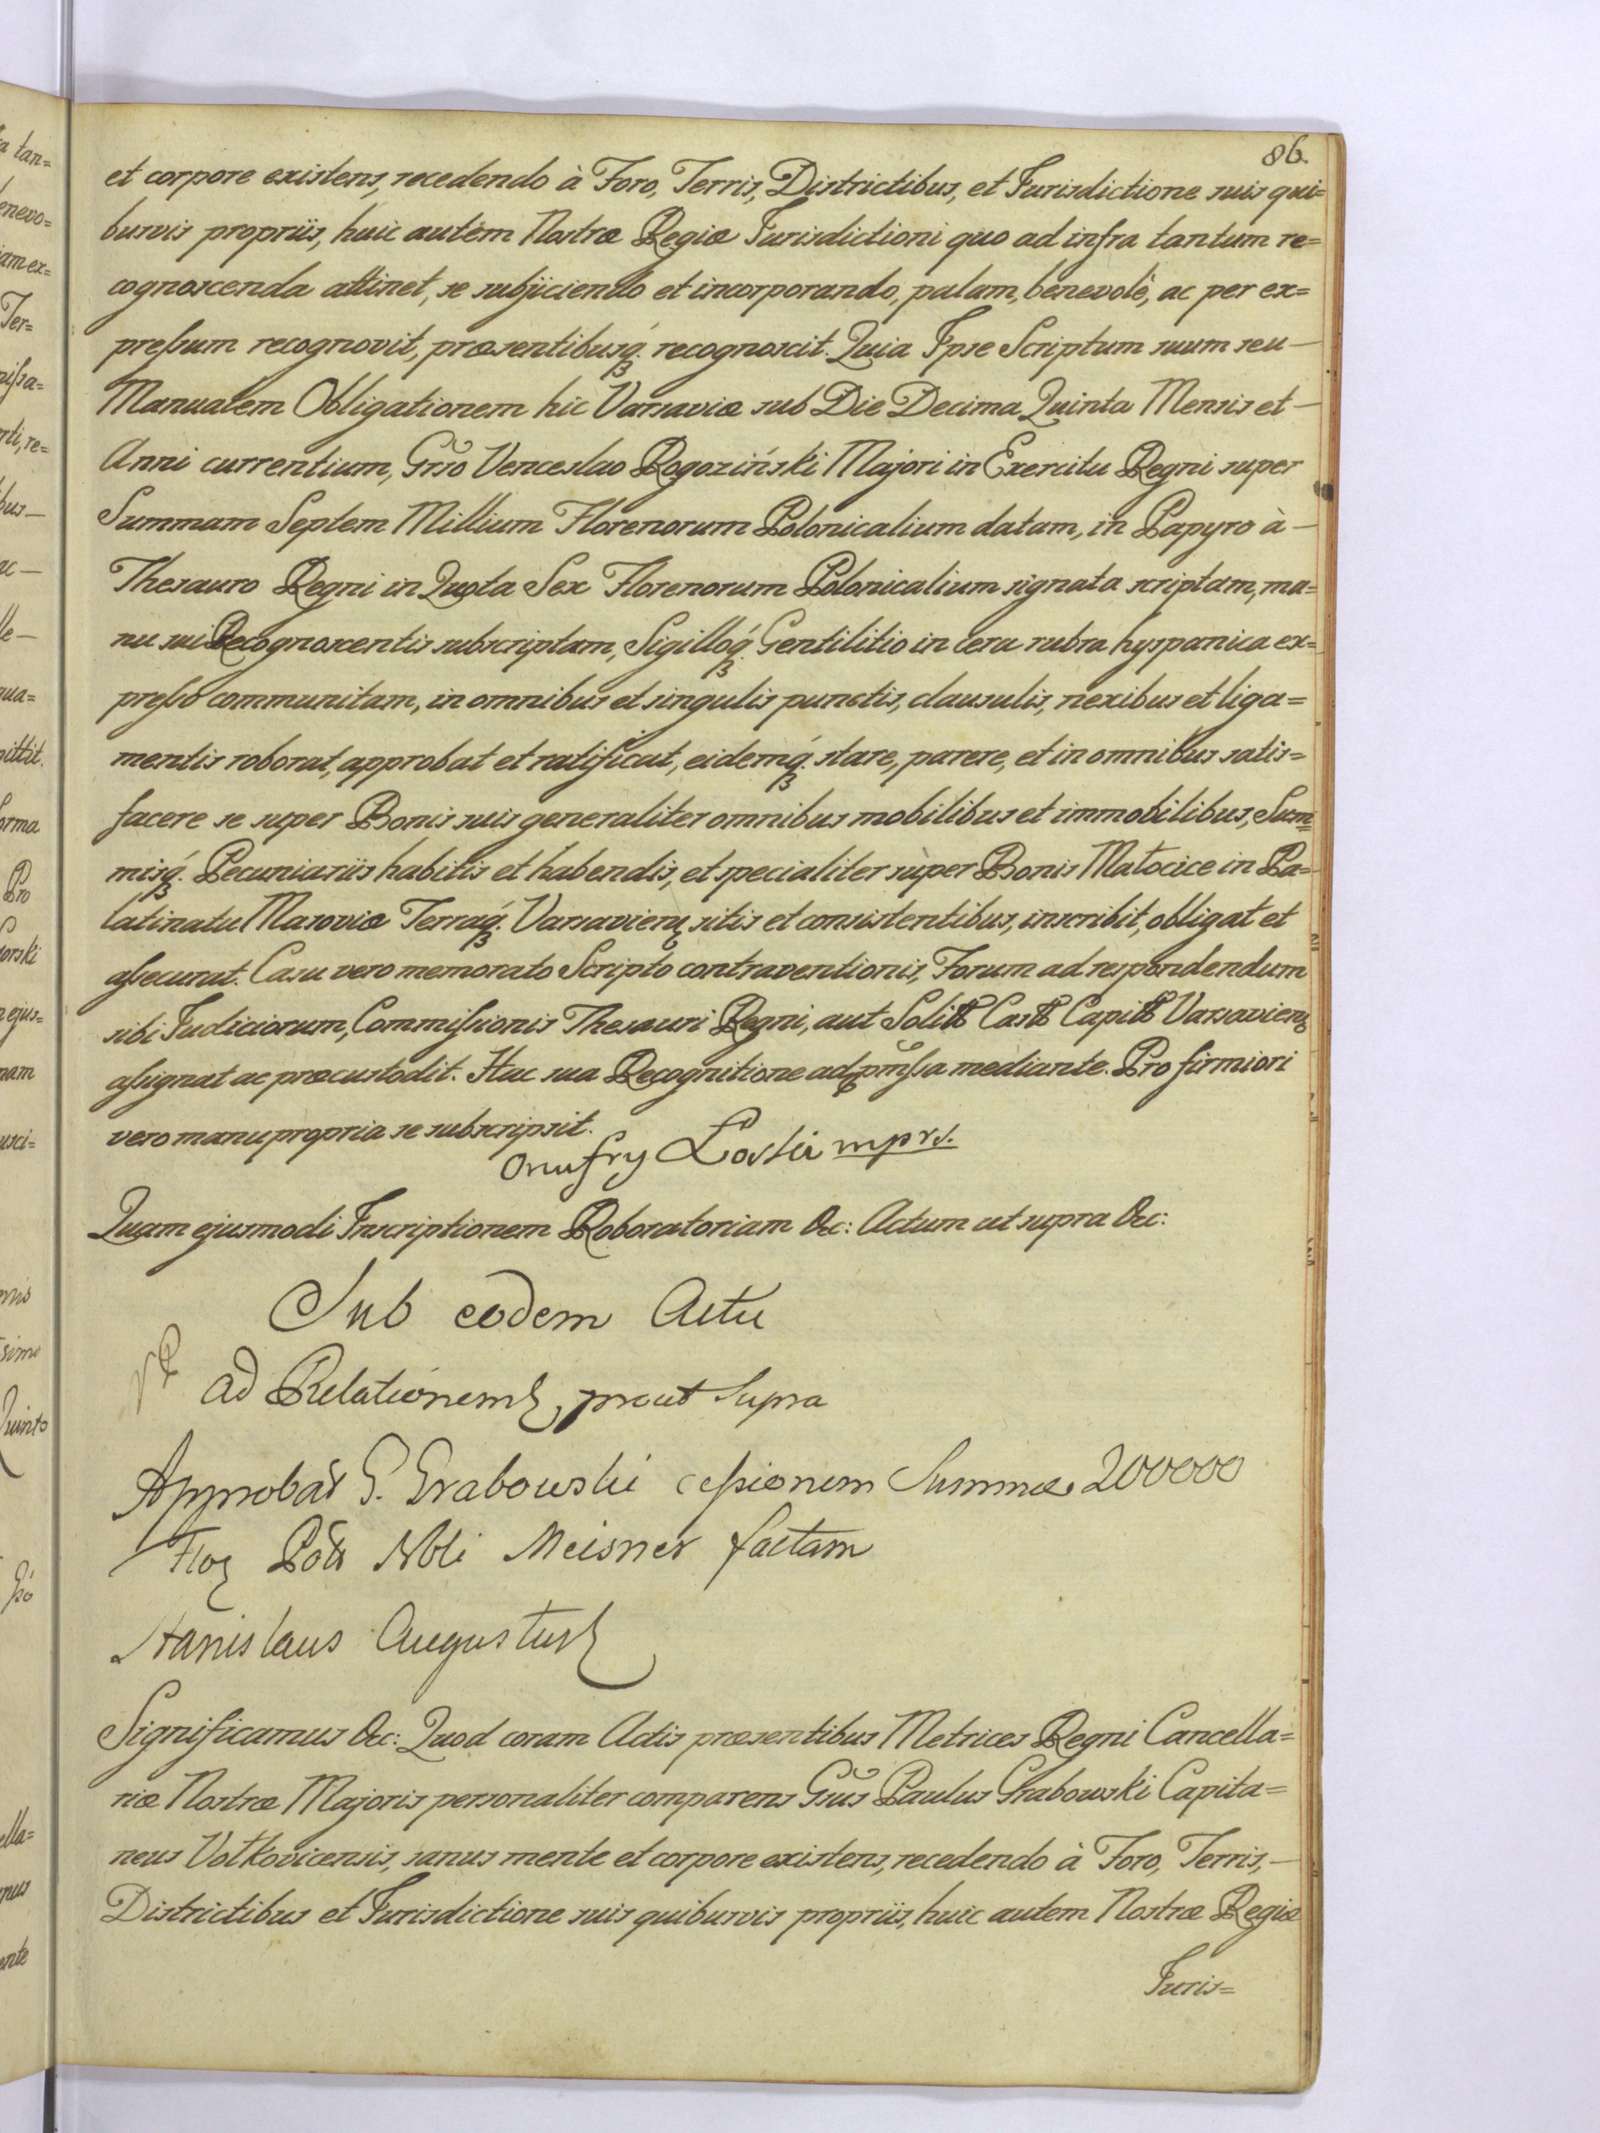 86.
et corpore existens, recedendo à Foro, Terris, Districtibus, et Jurisdictione suis qui=
busvis propriis, huic autem Nostræ Regiæ Jurisdictioni quo ad infra tantum re=
cognoscenda attinet, se subjiciendo et incorporando, palam, benevolè, ac per ex=
pressum recognovit, præsentibusq́ recognoscit. Quia Ipse Scriptum suum seu —
Manualem Obligationem hic Varsaviæ sub Die Decima Quinta Mensis et —
Anni currentium, Grso Venceslao Rogoziński Majori in Exercitu Regni super
Summam Septem Millium Florenorum Polonicalium datam, in Papyro à —
Thesauro Regni in Quota Sex Florenorum Polonicalium signata scriptam, ma=
nu sui Recognoscentis subscriptam, Sigilloq́ Gentilitio in cera rubra hyspanica ex=
presso communitam, in omnibus et singulis punctis, clausulis, nexibus et liga=
mentis roborat, approbat et ratificat, eidemq́ stare, parere, et in omnibus satis=
facere se super Bonis suis generaliter omnibus mobilibus et immobilibus, Sum=
misq́ Pecuniariis habitis et habendis, et specialiter super Bonis Małocice in Pa=
latinatu Masoviæ Terraq́ Varsavien sitis et consistentibus, inscribit, obligat et
assecurat. Casu vero memorato Scripto contraventionis, Forum ad respondendum
sibi Judiciorum, Commissionis Thesauri Regni, aut Solit Cast Capit Varsavien
assignat ac præcustodit. Hac sua Recognitione ad præmissa mediante. Pro firmiori
vero manu propria se subscripsit.
Onufry Łoski mprs.
Quam ejusmodi Inscriptionem Roboratoriam &c: Actum ut supra &c:
Sub eodem Actu
ad Relationem prout supra
Approbat G. Grabowski cessionem Summæ 200000
Flor Pol Nbli Meisner factam
Stanislaus Augustus
Significamus &c: Quod coram Actis præsentibus Metrices Regni Cancella=
riæ Nostræ Majoris personaliter comparens Gsus Paulus Grabowski Capita=
neus Vołkovicensis, sanus mente et corpore existens, recedendo à Foro, Terris, —
Districtibus et Jurisdictione suis quibusvis propriis, huic autem Nostræ Regiæ
Juris=